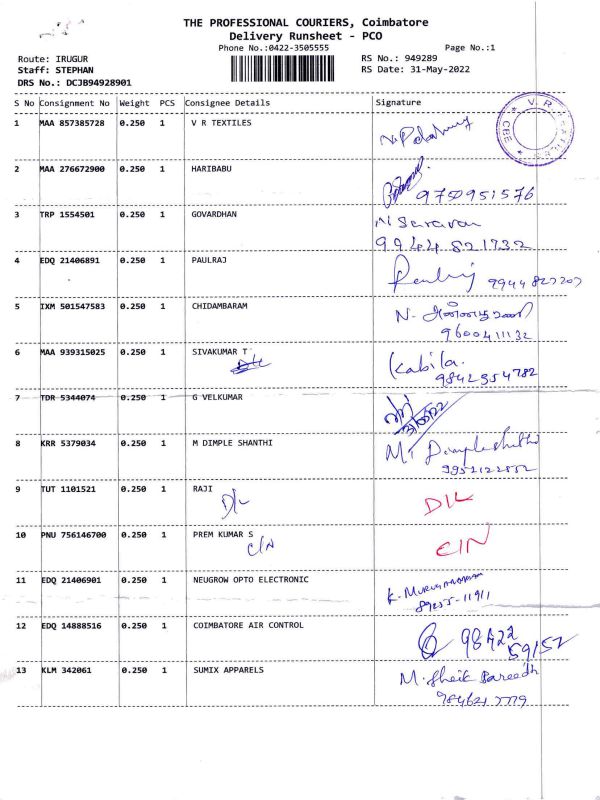 THE PROFESSIONAL COURIERS, Coimbatore
Delivery Runsheet - PCO
Phone No.:0422-3505555
Page No.:1
Route: IRUGUR
RS No.: 949289
Staff: STEPHAN
RS Date: 31-May-2022
DRS No.: DCJB94928901
S No Consignment No Weight PCS Consignee Details Signature
1 MAA 857385728 0.250 1 V R TEXTILES
CBE
2 MAA 276672900 0.250 1 HARIBABU
9750951576
3 TRP 1554501 0.250 1 GOVARDHAN N Saravan
9944 821732
4 EDQ 21406891 0.250 1 PAULRAJ
5 IXM 501547583 0.250 1 CHIDAMBARAM N.
9600411132
6 MAA 939315025 0.250 1 SIVAKUMAR T Kabila.
D/L 9842354782
7 TDR 5344074 0.250 1 G VELKUMAR
8 KRR 5379034 0.250 1 M DIMPLE SHANTHI
9 TUT 1101521 0.250 1 RAJI
D/L D/L
10 PNU 756146700 0.250 1 PREM KUMAR S
C/N C/N
11 EDQ 21406901 0.250 1 NEUGROW OPTO ELECTRONIC
89255-11911
12 EDQ 14888516 0.250 1 COIMBATORE AIR CONTROL
98422
59152
13 KLM 342061 0.250 1 SUMIX APPARELS M. Sheik Fareedh
984621 7779